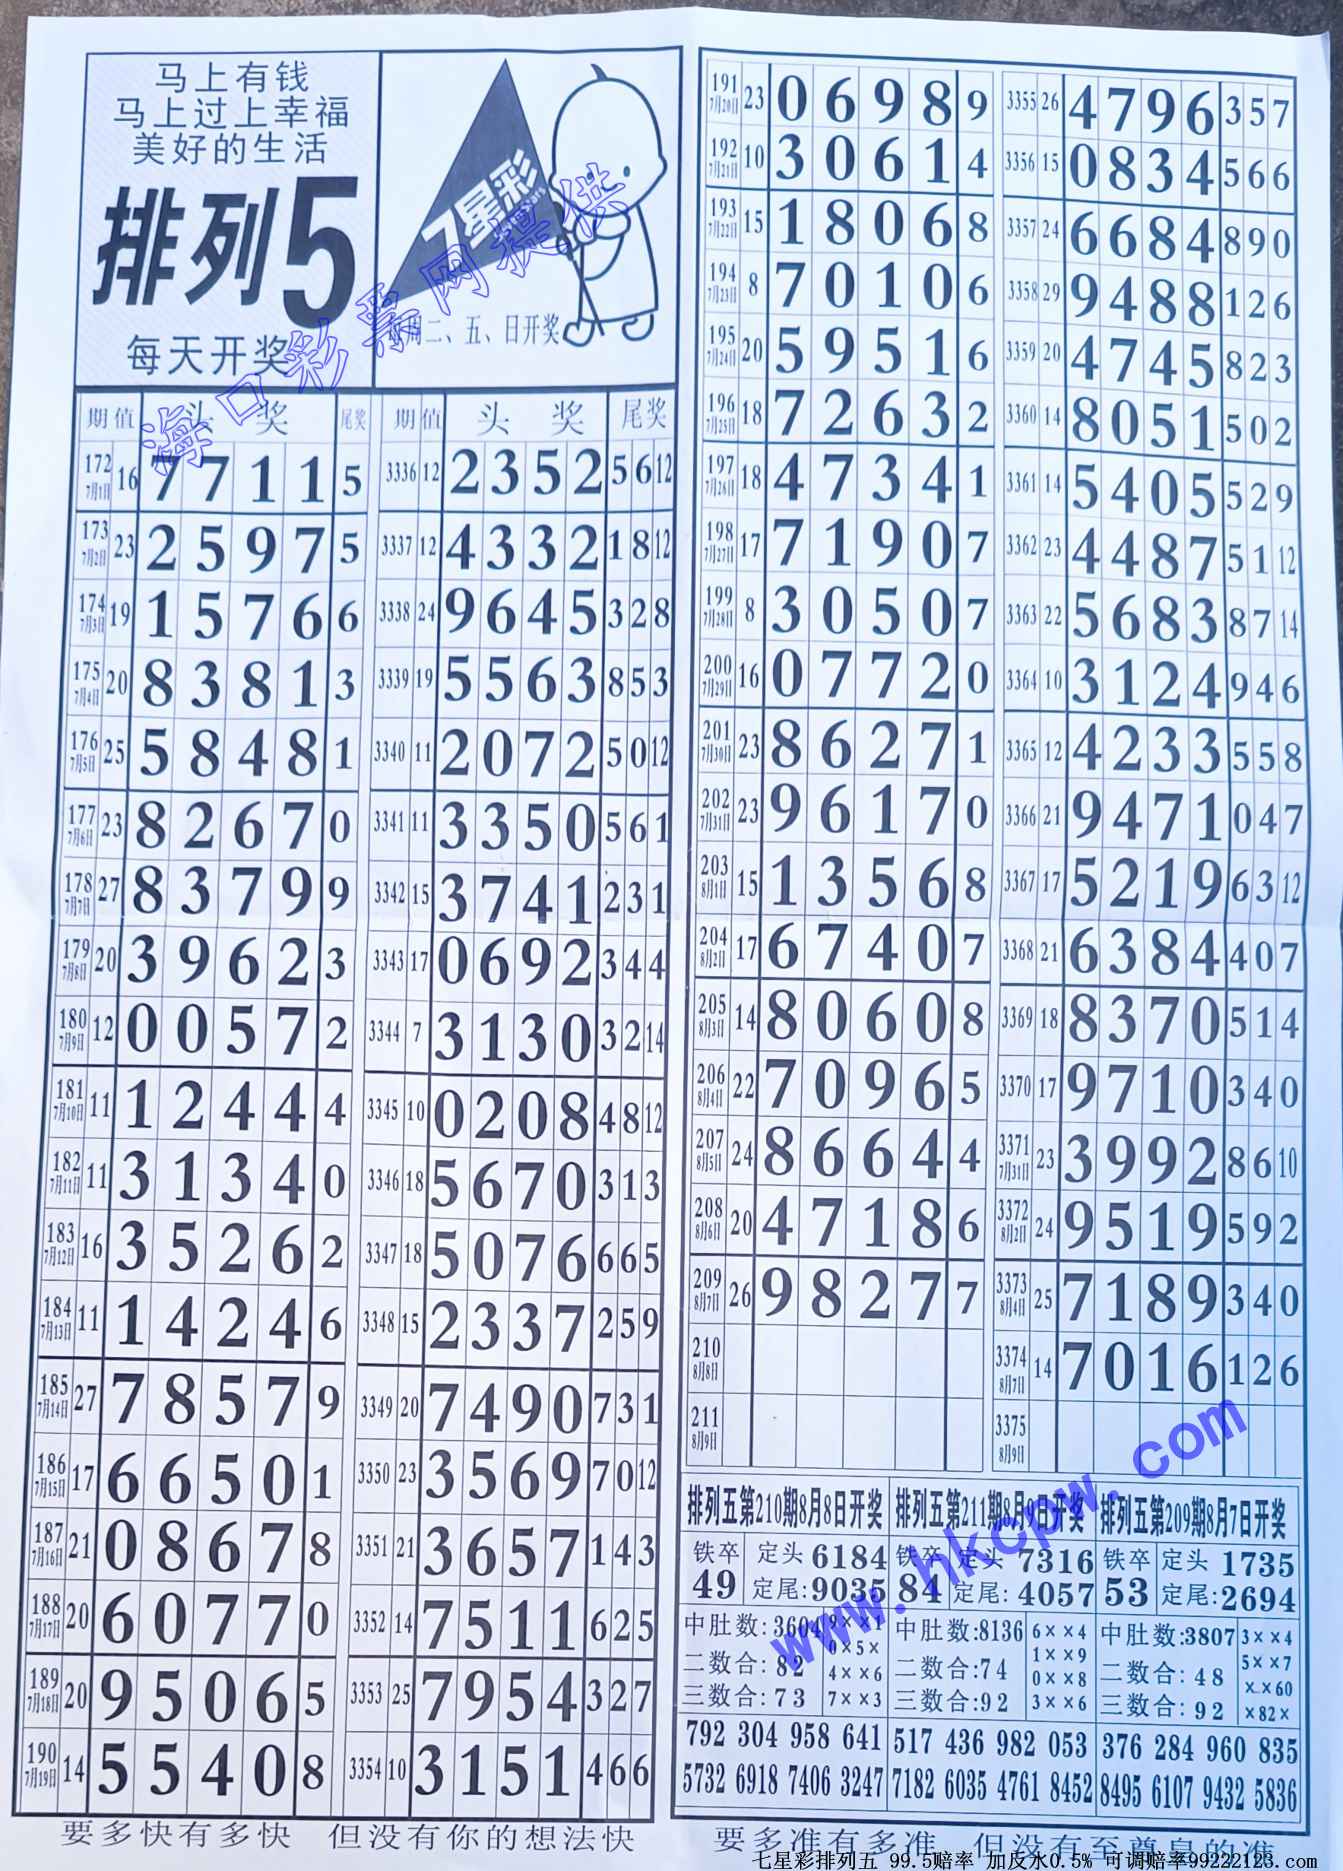 马上有钱
马上过上幸福
美好的生活
排列5
每天开奖
7星彩
每周二、五、日开奖
海口彩票网提供
期 值 头 奖 尾奖 期 值 头 奖 尾奖
172 7月1日 16 7 7 1 1 5 3336 12 2352 5 6 12
173 7月2日 23 2 5 9 7 5 3337 12 4332 1 8 12
174 7月3日 19 1 5 7 6 6 3338 24 9645 3 2 8
175 7月4日 20 8 3 8 1 3 3339 19 5563 8 5 3
176 7月5日 25 5 8 4 8 1 3340 11 2072 5 0 12
177 7月6日 23 8 2 6 7 0 3341 11 3350 5 6 1
178 7月7日 27 8 3 7 9 9 3342 15 3741 2 3 1
179 7月8日 20 3 9 6 2 3 3343 17 0692 3 4 4
180 7月9日 12 0 0 5 7 2 3344 7 3130 3 2 14
181 7月10日 11 1 2 4 4 4 3345 10 0208 4 8 12
182 7月11日 11 3 1 3 4 0 3346 18 5670 3 1 3
183 7月12日 16 3 5 2 6 2 3347 18 5076 6 6 5
184 7月13日 11 1 4 2 4 6 3348 15 2337 2 5 9
185 7月14日 27 7 8 5 7 9 3349 20 7490 7 3 1
186 7月15日 17 6 6 5 0 1 3350 23 3569 7 0 12
187 7月16日 21 0 8 6 7 8 3351 21 3657 1 4 3
188 7月17日 20 6 0 7 7 0 3352 14 7511 6 2 5
189 7月18日 20 9 5 0 6 5 3353 25 7954 3 2 7
190 7月19日 14 5 5 4 0 8 3354 10 3151 4 6 6
要多快有多快 但没有你的想法快
191 7月20日 23 0 6 9 8 9 3355 26 4796 3 5 7
192 7月21日 10 3 0 6 1 4 3356 15 0834 5 6 6
193 7月22日 15 1 8 0 6 8 3357 24 6684 8 9 0
194 7月23日 8 7 0 1 0 6 3358 29 9488 1 2 6
195 7月24日 20 5 9 5 1 6 3359 20 4745 8 2 3
196 7月25日 18 7 2 6 3 2 3360 14 8051 5 0 2
197 7月26日 18 4 7 3 4 1 3361 14 5405 5 2 9
198 7月27日 17 7 1 9 0 7 3362 23 4487 5 1 12
199 7月28日 8 3 0 5 0 7 3363 22 5683 8 7 14
200 7月29日 16 0 7 7 2 0 3364 10 3124 9 4 6
201 7月30日 23 8 6 2 7 1 3365 12 4233 5 5 8
202 7月31日 23 9 6 1 7 0 3366 21 9471 0 4 7
203 8月1日 15 1 3 5 6 8 3367 17 5219 6 3 12
204 8月2日 17 6 7 4 0 7 3368 21 6384 4 0 7
205 8月3日 14 8 0 6 0 8 3369 18 8370 5 1 4
206 8月4日 22 7 0 9 6 5 3370 17 9710 3 4 0
207 8月5日 24 8 6 6 4 4 3371 7月31日 23 3992 8 6 10
208 8月6日 20 4 7 1 8 6 3372 8月2日 24 9519 5 9 2
209 8月7日 26 9 8 2 7 7 3373 8月4日 25 7189 3 4 0
210 8月8日 3374 8月7日 14 7016 1 2 6
211 8月9日 3375 8月9日
排列五第210期8月8日开奖
铁卒 定头 6184
49 定尾:9035
中肚数:3604 9××1
0×5×
二数合:82 4××6
三数合:73 7××3
792 304 958 641
5732 6918 7406 3247
排列五第211期8月9日开奖
铁卒 定头 7316
84 定尾:4057
中肚数:8136 6××4
1××9
二数合:74 0××8
三数合:92 3××6
517 436 982 053
7182 6035 4761 8452
排列五第209期8月7日开奖
铁卒 定头 1735
53 定尾:2694
中肚数:3807 3××4
5××7
二数合:48 ××60
三数合:92 ×82×
376 284 960 835
8495 6107 9432 5836
www.hkcpw.com
要多准有多准 但没有至尊皇的准
七星彩排列五 99.5赔率 加反水0.5% 可调赔率99222123.com